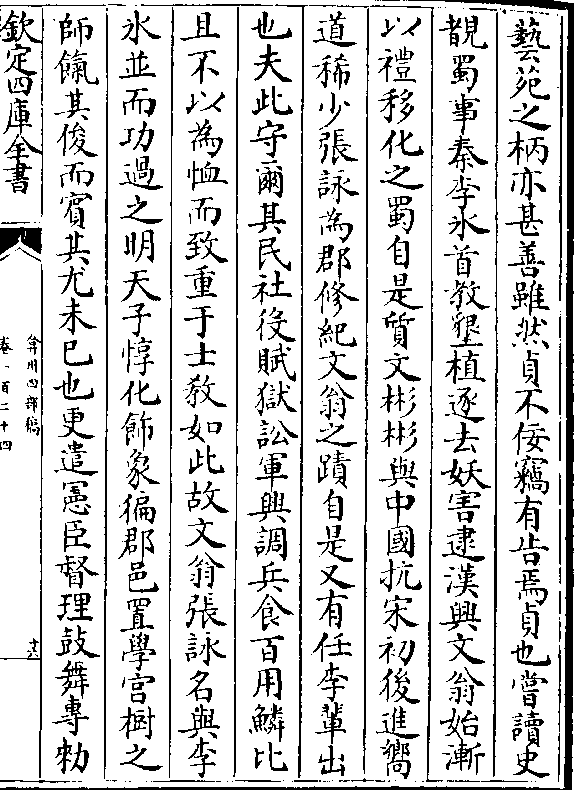 藝苑之柄亦甚善雖然貞不佞竊有告焉貞也嘗讀史
覩蜀事秦李氷首教墾植逐去妖害逮漢興文翁始漸
以禮移化之蜀自是質文彬彬與中國抗宋初後進嚮
道稀少張詠為郡修紀文翁之蹟自是又有任李輩出
也夫此守爾其民社役賦獄訟軍興調兵食百用鱗比
且不以為恤而致重于士教如此故文翁張詠名與李
氷並而功過之明天子惇化飾象徧郡邑置學宫樹之
師餼其俊而賔其尤未已也更遣憲臣督理鼓舞專勑
欽定四庫全書
弇州四部稿
卷一百二十四
十六